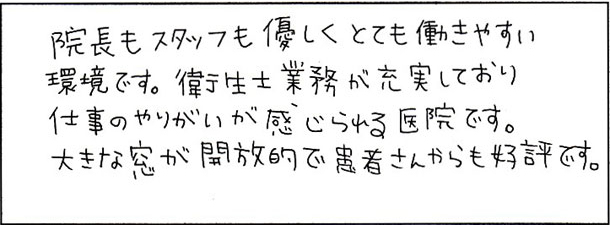 院長もスタッフも優しくとても働きやすい
環境です。衛生士業務が充実しており
仕事のやりがいが感じられる医院です。
大きな窓が開放的で患者さんからも好評です。